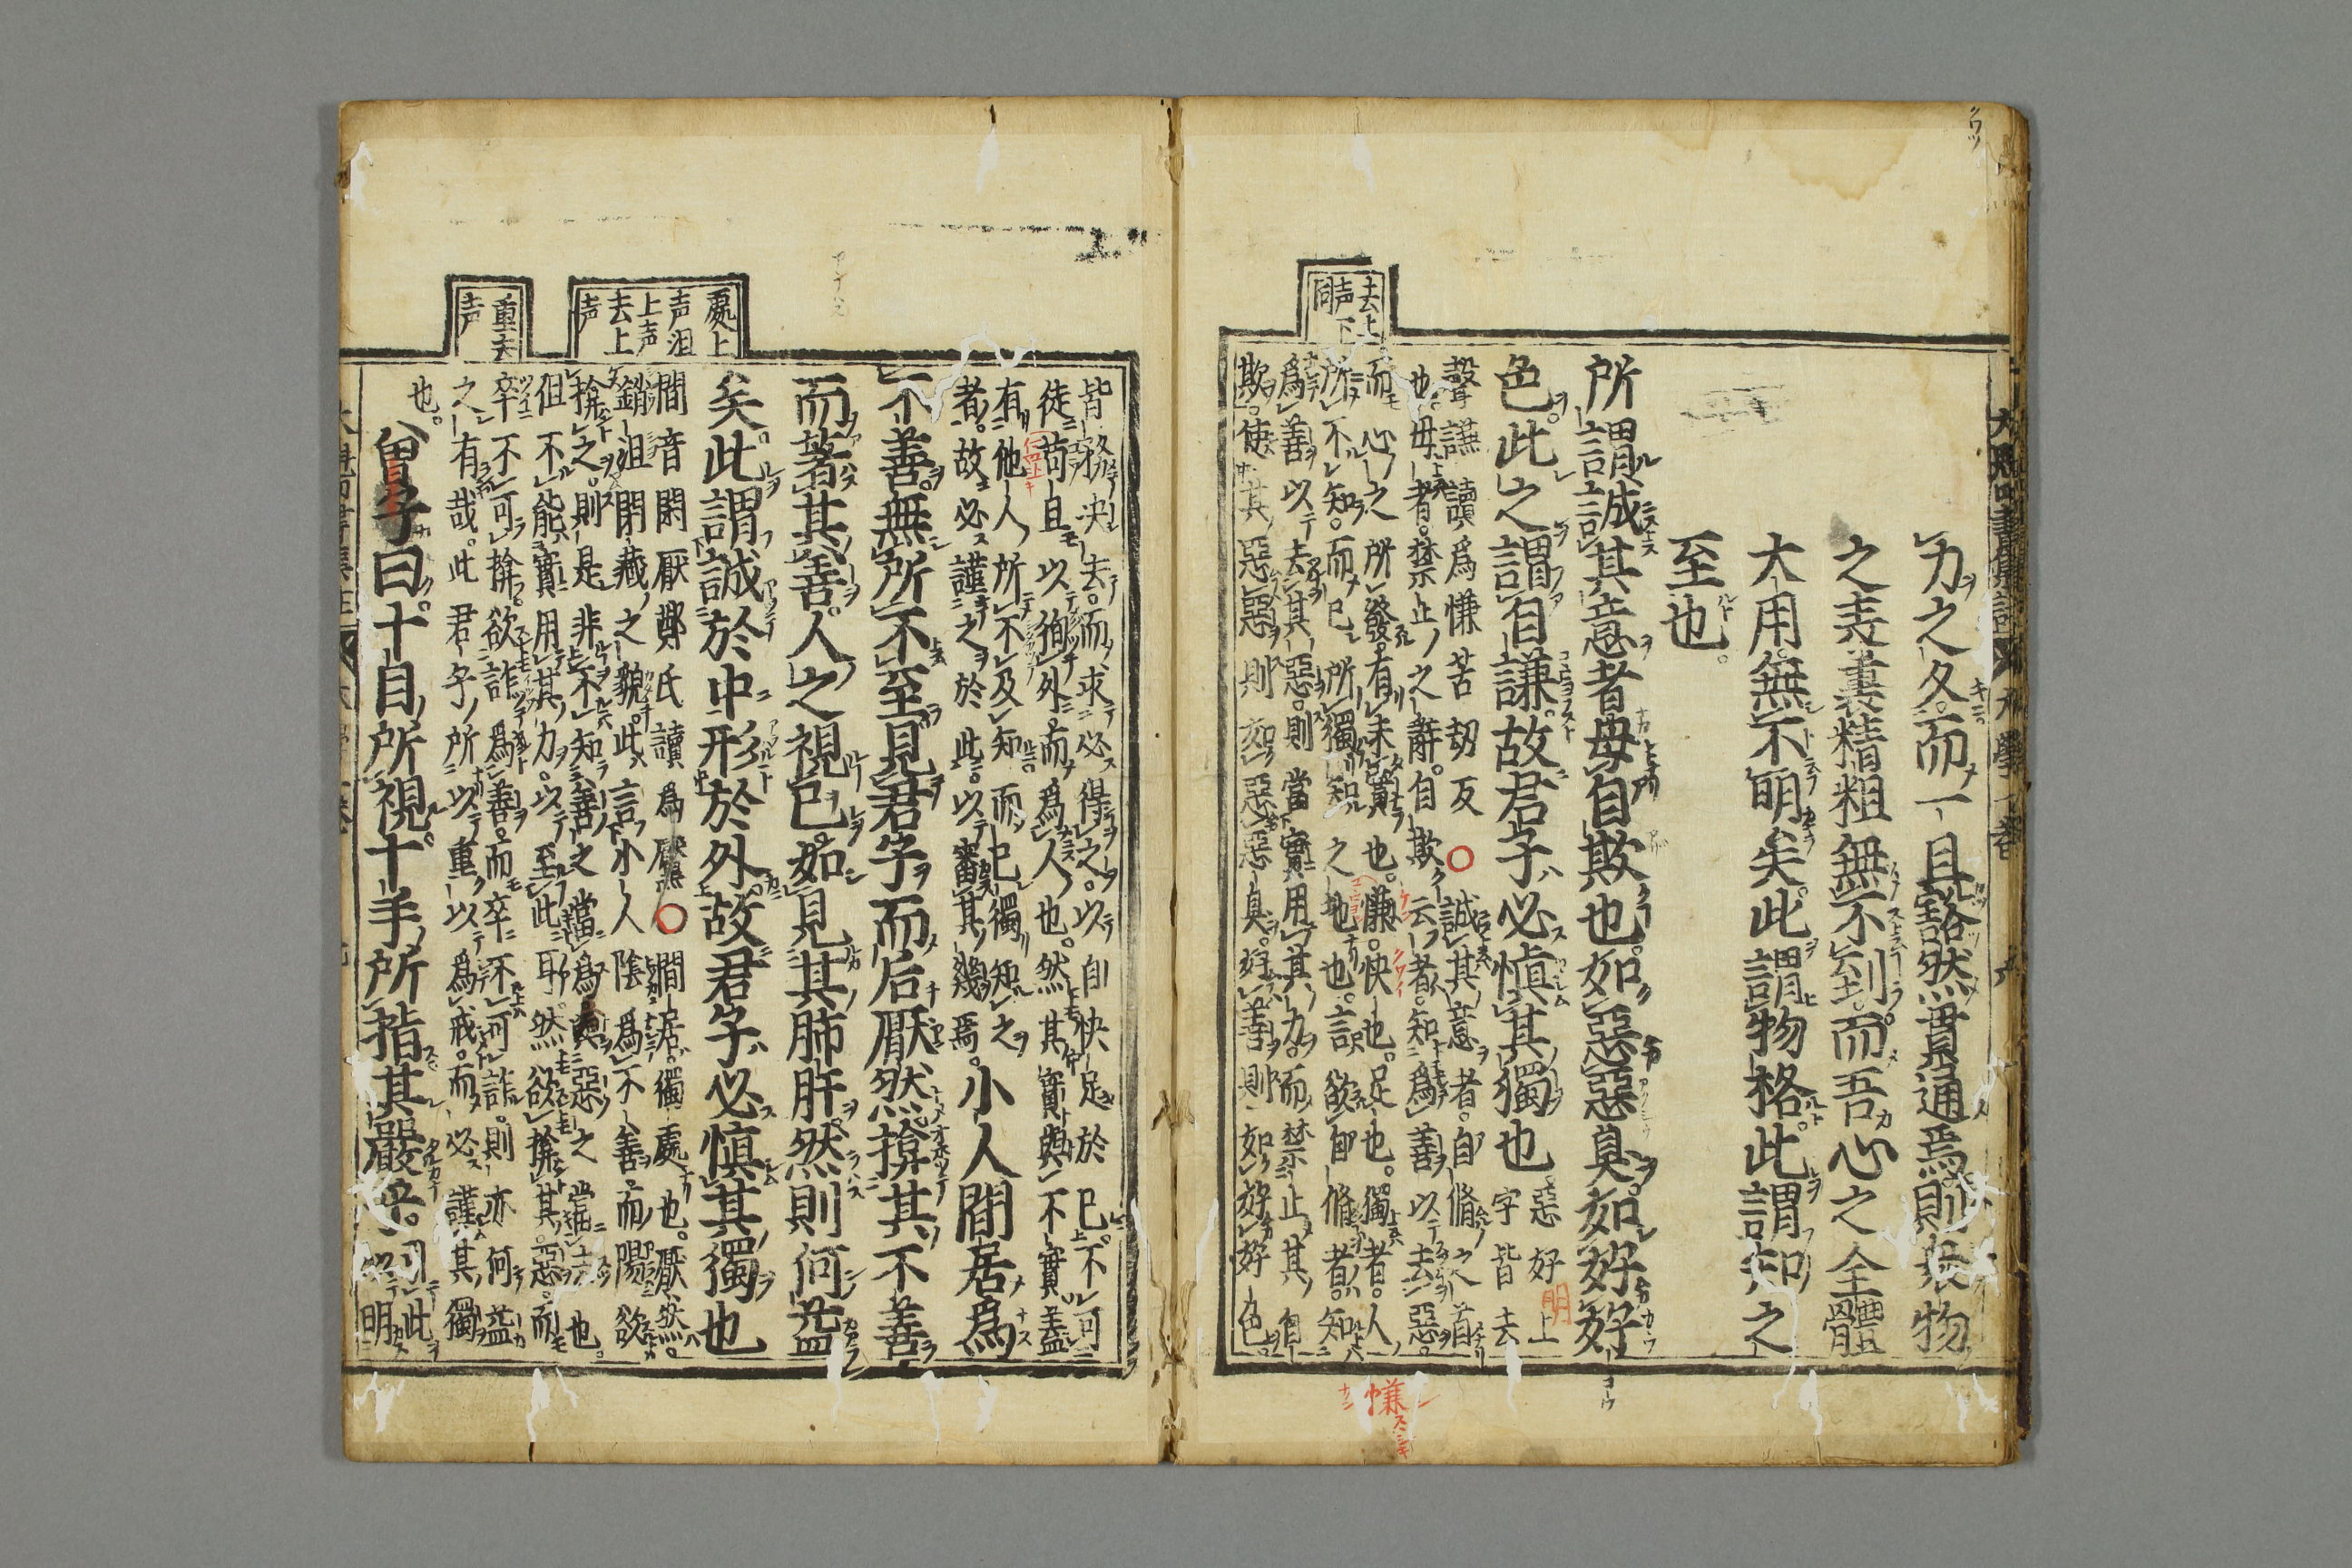 力之久而一旦豁然貫通焉則衆物
之表裏精粗無不到而吾心之全體
大用無不明矣此謂物格此謂知之
至也
所謂誠其意者毋自欺也如惡惡臭如好好
色此之謂自謙故君子必慎其獨也惡好上
字皆去
聲謙讀爲慊苦劫反○誠其意者自脩之首
也毋者禁止之辭自欺云者知爲善以去惡
而心之所發有未實也慊快也足也獨者人
所不知而已所獨知之地也言欲自脩者知
爲善以去其惡則當實用其力而禁止其自
欺使其惡惡則如惡惡臭好善則如好好色
去上
声下
同
慊
皆務決去而求必得之以自快足於己不可
徒苟且以徇外而爲人也然其實與不實蓋
有他人所不及知而己獨知之
者故必謹之於此以審其幾焉小人間居爲
不善無所不至見君子而后厭然揜其不善
而著其善人之視己如見其肺肝然則何益
矣此謂誠於中形於外故君子必慎其獨也
間音閑厭鄭氏讀爲黶○間居獨處也厭然
銷沮閉藏之貌此言小人陰爲不善而陽欲
揜之則是非不知善之當爲與惡之當去也
但不能實用其力以至此耳然欲揜其惡而
卒不可揜欲詐爲善而卒不可詐則亦何益
之有哉此君子所以重以爲戒而必謹其獨
也
曾子曰十目所視十手所指其嚴乎引此
以明
處上
声沮
上声
去上
声
重去
声